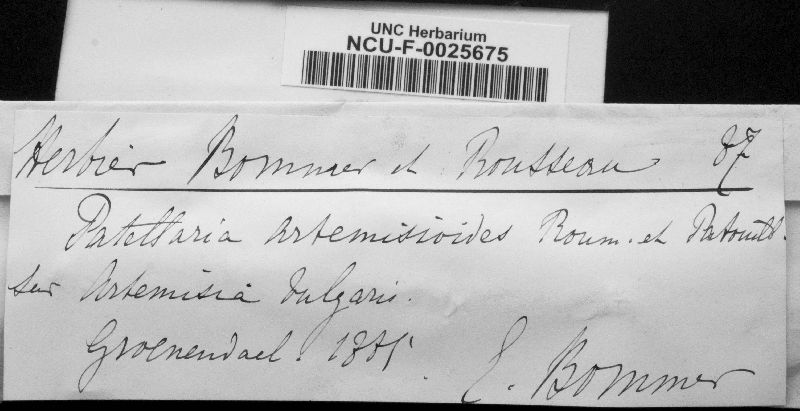 UNC Herbarium
NCU-F-0025675
Herbier Bommer et Rousseau 87
Patellaria artemisioides Roum. et Patouill.
sur Artemisia vulgaris.
Groenendael. 1885
E. Bommer